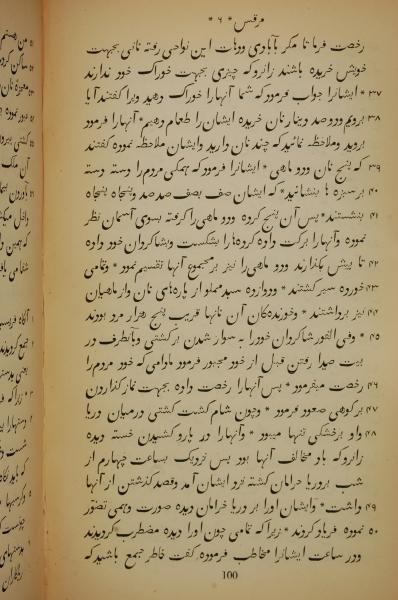 مرقس * ۶ *
رخصت فرما تا مکر بآبادی ودهات این نواحی رفته نانی بجهت
خویش خریده باشند زانرو که چیزی بجهت خوراک خود ندارند
۳۷ * ایشانرا جواب فرمود که شما آنهارا خوراک دهید ویرا کفتند آیا
۳۸ برویم ودوصد دینار نان خریده ایشان را طعام دهیم * آنهارا فرمود
بروید وملاحظه نمائید که چند نان دارید وایشان ملاحظه نموده کفتند
۳۹ که پنج نان ودو ماهی * ایشانرا فرمود که همکی مردم را دسته دسته
۴۰ بر سبزه ها بنشانید * که ایشان صف بصف صد صد وپنجاه پنجاه
۴۱ بنشستند * پس آن پنج کرده ودو ماهی را کرفته بسوی آسمان نظر
نموده وآنهارا برکت داده کرده‌ها را بشکست وبشاکردان خود داده
۴۲ تا پیش بکذارند ودو ماهی را نیز بر مجموع آنها تقسیم نمود * وتمامی
۴۳ خورده سیر کشتند * ودوازده سبد مملو از پاره‌های نان واز ماهیان
۴۴ نیز برداشتند * وخورندهکان آن نانها قریب پنج هزار مرد بودند
۴۵ * وفی الفور شاکردان خود را به سوار شدن بر کشتی وبآنطرف در
بیت صیدا رفتن قبل از خود مجبور فرمود مادامی که خود مردم را
۴۶ رخصت میفرمود * پس آنهارا رخصت داده بجهت نماز کذاردن
۴۷ بر کوهی صعود فرمود * وچون شام کشت کشتی در میان دریا
۴۸ واو بر خشکی تنها میبود * وآنهارا در پارو کشیدن خسته دیده
زانرو که باد مخالف آنها بود پس نزدیک بساعت چهارم از
شب بر دریا خرامان کشته نزد ایشان آمد وقصد کذشتن از آنها
۴۹ داشت * وایشان اورا بر دریا خرامان دیده صورت وهمی تصوّر
۵۰ نموده فریاد کردند * زیرا که تمامی چون اورا دیده مضطرب کردیدند
ودر ساعت ایشانرا مخاطب فرموده کفت خاطر جمع باشید که
100